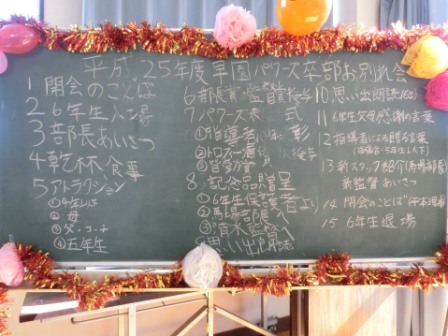 平成25年度 草園パワーズ卒部お別れ会
1 開会のことば
2 6年生入場
3 部長あいさつ
4 乾杯、食事
5 アトラクション
① 4年以下
② 母
③ 父・コーチ
④ 五年生
6 部長賞・監督賞授与
7 パワーズ 式
① 指導者 彰
② トロフィー
③ 皆勤賞
8 記念品贈呈
① 6年生保護者より
② 馬場部長へ
③ 清水監督へ
9 思い出
10 思い出朗読
11 6年生父母感謝の言葉
12 指導者による贈る言葉
(指導者・5年生以下)
13 新スタッフ紹介(馬場部長)
新監督あいさつ
14 閉会のことば
15 6年生退場